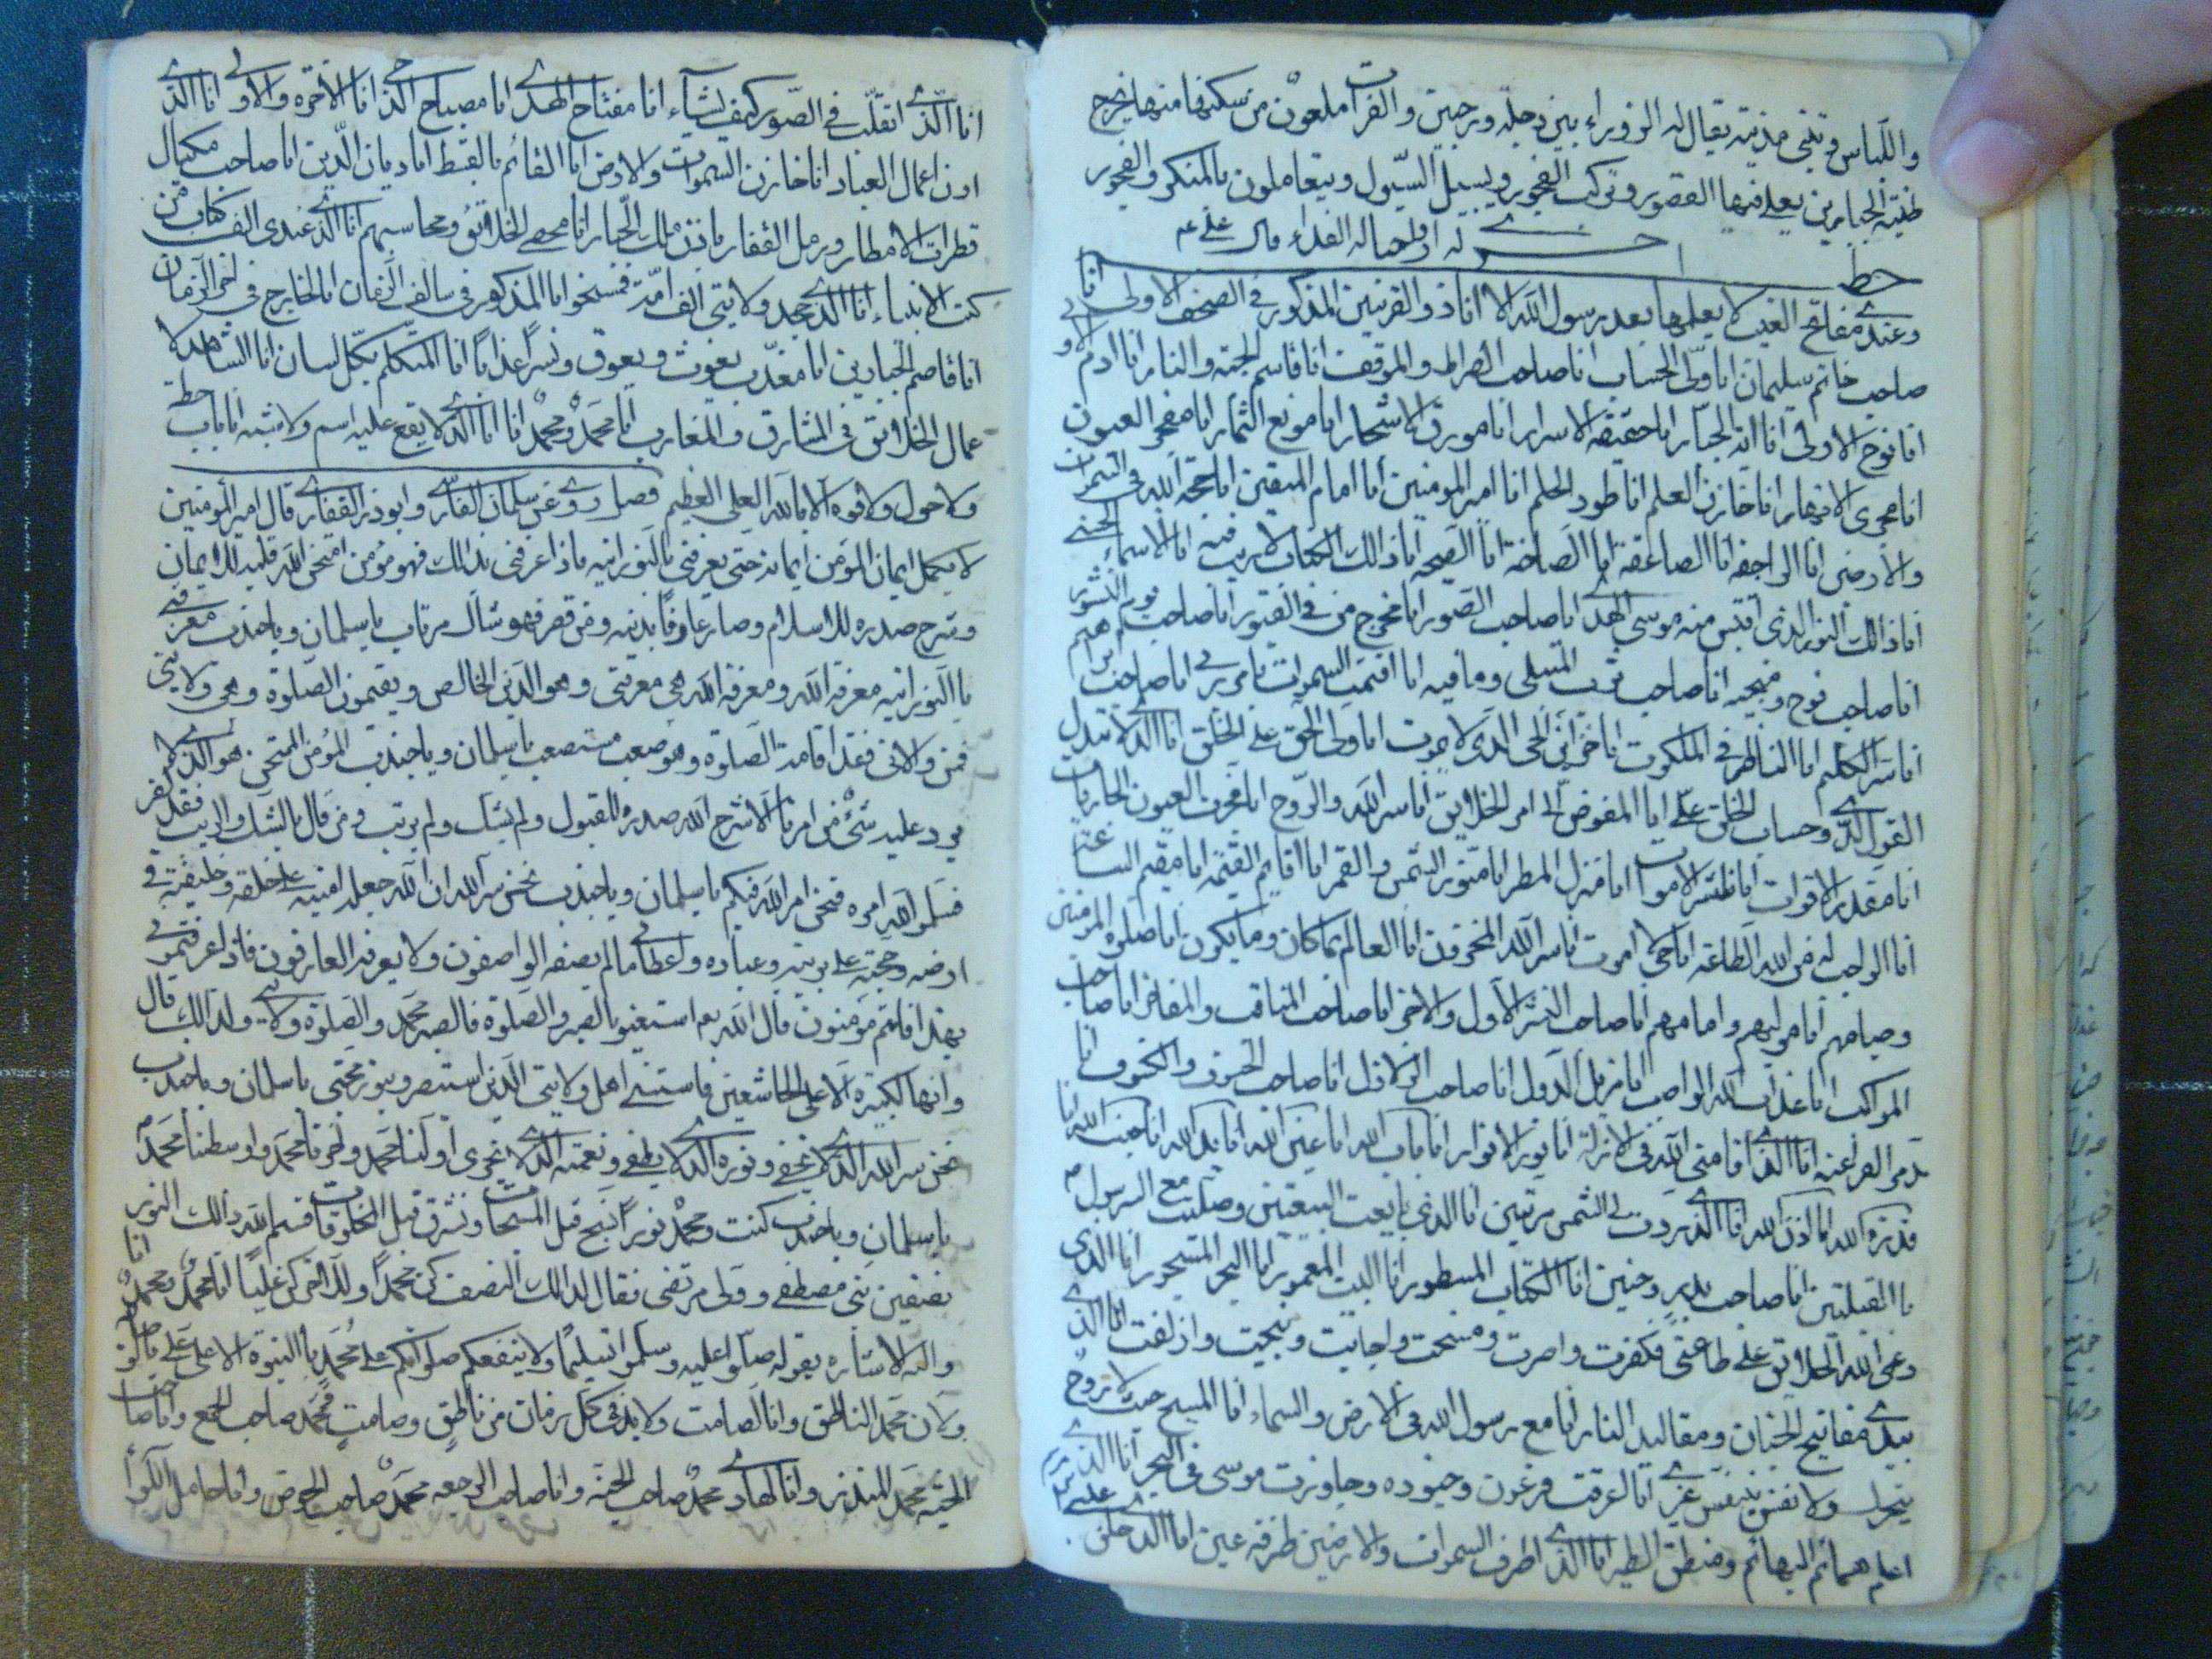 واللباس وتبنى مدينة يقال لها الزوراء بين دجلة ودجيل والفرات ملعون من سكنها منها يخرج
طينة الجبارين يعلى فيها القصور وتركب الفجور ويسبل السيول ويتعاملون بالمنكر والفجور
خطبة اخرى له ارواحنا له الفداء قال على عم
وعندى مفاتح الغيب لا يعلمها بعد رسول الله الا انا ذو القرنين المذكور فى الصحف الاولى انا
صاحب خاتم سليمان انا ولى الحساب انا صاحب الصراط والموقف انا قاسم الجنة والنار انا ادم الاول
انا نوح الاولى انا اية الجبار انا حقيقة الاسرار انا مورق الاشجار انا مونع الثمار انا مفجر العيون
انا مجرى الانهار انا خازن العلم انا طود الحلم انا امير المومنين انا امام المتقين انا حجة الله فى السموات
والارض انا الراجفة انا الصاعقة انا الصاخة انا الصيحة انا ذالك الكتاب لا ريب فيه انا الاسماء الحسنى
انا ذالك النور الذى اقتبس منه موسى الهدى انا صاحب الصور انا مخرج من فى القبور انا صاحب يوم النشور
انا صاحب نوح ومنجيه انا صاحب ايوب المبتلى وما فيه انا اقمت السموات بامر ربى انا صاحب ابراهيم
انا سر الكليم انا الناظر فى الملكوت انا الحى الذى لا يموت انا ولى الحق على الخلق انا الذى لا يبدل
القول لدى وحساب الخلق على انا المفوض الى امر الخلايق انا سر الله والروح انا مفجر العيون الجاريات
انا مقدر الاقوات انا ناشر الاموات انا منزل المطر انا منور الشمس والقمر انا اقايم القيمة انا مقيم الساعة
انا الواجب له من الله الطاعة انا حى لا اموت انا سر الله المخزون انا العالم بما كان وما يكون انا صلوة المومنين
وصيامهم انا موليهم وامامهم انا صاحب النشر الاول والاخر انا صاحب المناقب والمفاخر انا صاحب
الكواكب انا عذاب الله الواصب انا مزيل الدول انا صاحب الزلازل انا صاحب الخسوف والكسوف انا
مدمر الفراعنة انا الذى اقامنى الله فى الازلة انا نور الانوار انا باب الله انا عين الله انا يد الله انا جنب الله انا
قدرة الله انا اذن الله انا الذى ردت لى الشمس مرتين انا الذى بايعت البيعتين وصليت مع الرسول
بالقبلتين انا صاحب بدر وحنين انا الكتاب المسطور انا البيت المعمور انا البحر المسجور انا الذى
دعى الله الخلايق على طاعتى فكفرت واصرت ومسخت واجابت ونجيت وازلفت انا الذى
بيدى مفاتيح الجنان ومقاليد النار انا مع رسول الله فى الارض والسماء انا المسيح حيث لا روح
يتحرك ولا نفس يتنفس غيرى انا اغرقت فرعون وجنوده وجاوزت موسى فى البحر انا الذى
اعلم هماهم البهائم ومنطق الطير انا الذى اطرف السموات والارضين طرفة عين
انا الذى اتقلب فى الصور كيف يشاء انا مفتاح الهدى انا مصباح الدجى انا الاخرة والاولى انا الذى
ارى اعمال العباد انا خازن السموات والارض انا القائم بالقسط انا ديان الدين انا صاحب مكيال
قطرات الامطار ورمل القفار باذن ملك الجبار انا محصى الخلائق ومحاسبهم انا الذى عندى الف كتاب من
كتب الانبياء انا الذى جحد ولايتى الف امة فمسخوا انا المذكور فى سالف الزمان انا الخارج فى اخر الزمان
انا قاصم الجبارين انا معذب يغوث ويعوق ونسرا عذابا انا المتكلم بكل لسان انا الشاهد لا
عمال الخلائق فى المشارق والمغارب انا محمد ومحمد انا انا الذى لا يقع عليه اسم ولا شبه انا باب حطة
ولا حول ولا قوة الا بالله العلى العظيم فصل روى عن سلمان الفارسى وابوذر الغفارى قال امير المومنين
لا يكمل ايمان المومن ايمانه حتى يعرفنى بالنورانية فاذا عرفنى بذلك فهو مومن امتحن الله قلبه للايمان
وشرح صدره للاسلام وصار عارفا بدينه ومن قصر فهو شاك مرتاب يا سلمان ويا جندب معرفتى
باالنورانية معرفة الله ومعرفة الله هى معرفتى وهو الدين الخالص ويقيمون الصلوة وهى ولايتى
فمن والانى فقد اقامة الصلوة وهو صعب مستصعب يا سلمان ويا جندب المؤمن الممتحن هو الذى لم
يرد عليه شئ من امرنا الا شرح الله صدره للقبول ولم يشك ولم يرتب ومن قال بالشك والريب فقد كفر
فسلموا لله امره فنحن امر الله فيكم يا سلمان ويا جندب نحن سر الله ان الله جعلنى امينه على خلقه وخليفته فى
ارضه وحجته على بريته وعباده واعطانى ما لم يصفه الواصفون ولا يعرفه العارفون فاذا عرفتمونى
بهذا فانتم مومنون قال الله تع استعينوا بالصبر والصلوة فالصبر محمد والصلوة ولايتى ولذالك قال
وانها لكبيرة الا على الخاشعين فاستثنى اهل ولايتى الذين استبصروا بنور محبتى يا سلمان ويا جندب
نحن سر الله الذى لا يخفى ونوره الذى لا يطفى ونعمته الذى لا تجزى اولنا محمد واخرنا محمد واوسطنا محمد
يا سلمان ويا جندب كنت ومحمد نورا نسبح قبل المسبحات ونشرق قبل المخلوقات فقسم الله ذالك النور
نصفين نبى مصطفى وولى مرتضى فقال لذالك النصف كن محمدا وللاخر كن عليا انا محمد ومحمد انا
واليه الاشارة بقوله صلوا عليه وسلموا تسليما ولا ينفعكم صلواتكم على محمد باالنبوة الا على على بالو
ولان محمد الناطق وانا الصامت ولا بد فى كل زمان من ناطق وصامت محمد صاحب الجمع وانا صاحب
الجنة محمد المنذر وانا الهادى محمد صاحب الجنة وانا صاحب الرجعة محمد صاحب الحوض وانا حامل اللواء